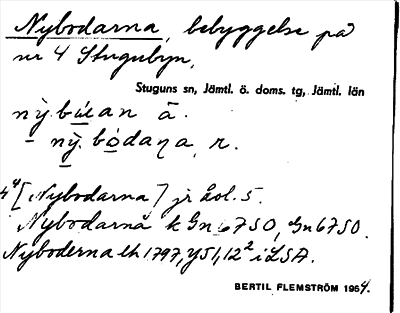 Nybodarna, bebyggelse på
nr 4 Stugubyn.
Stuguns sn, Jämtl. ö. doms. tg, Jämtl. län
ny. an å.
- ny. bódaṇa, r.
4⁴ [Nybodarna] jr Lol. 5.
Nybodarna k Gn 6750, Gn 6750.
Nyboderna lh 1797, Y51, 12² i LSA.
BERTIL FLEMSTRÖM 1964.